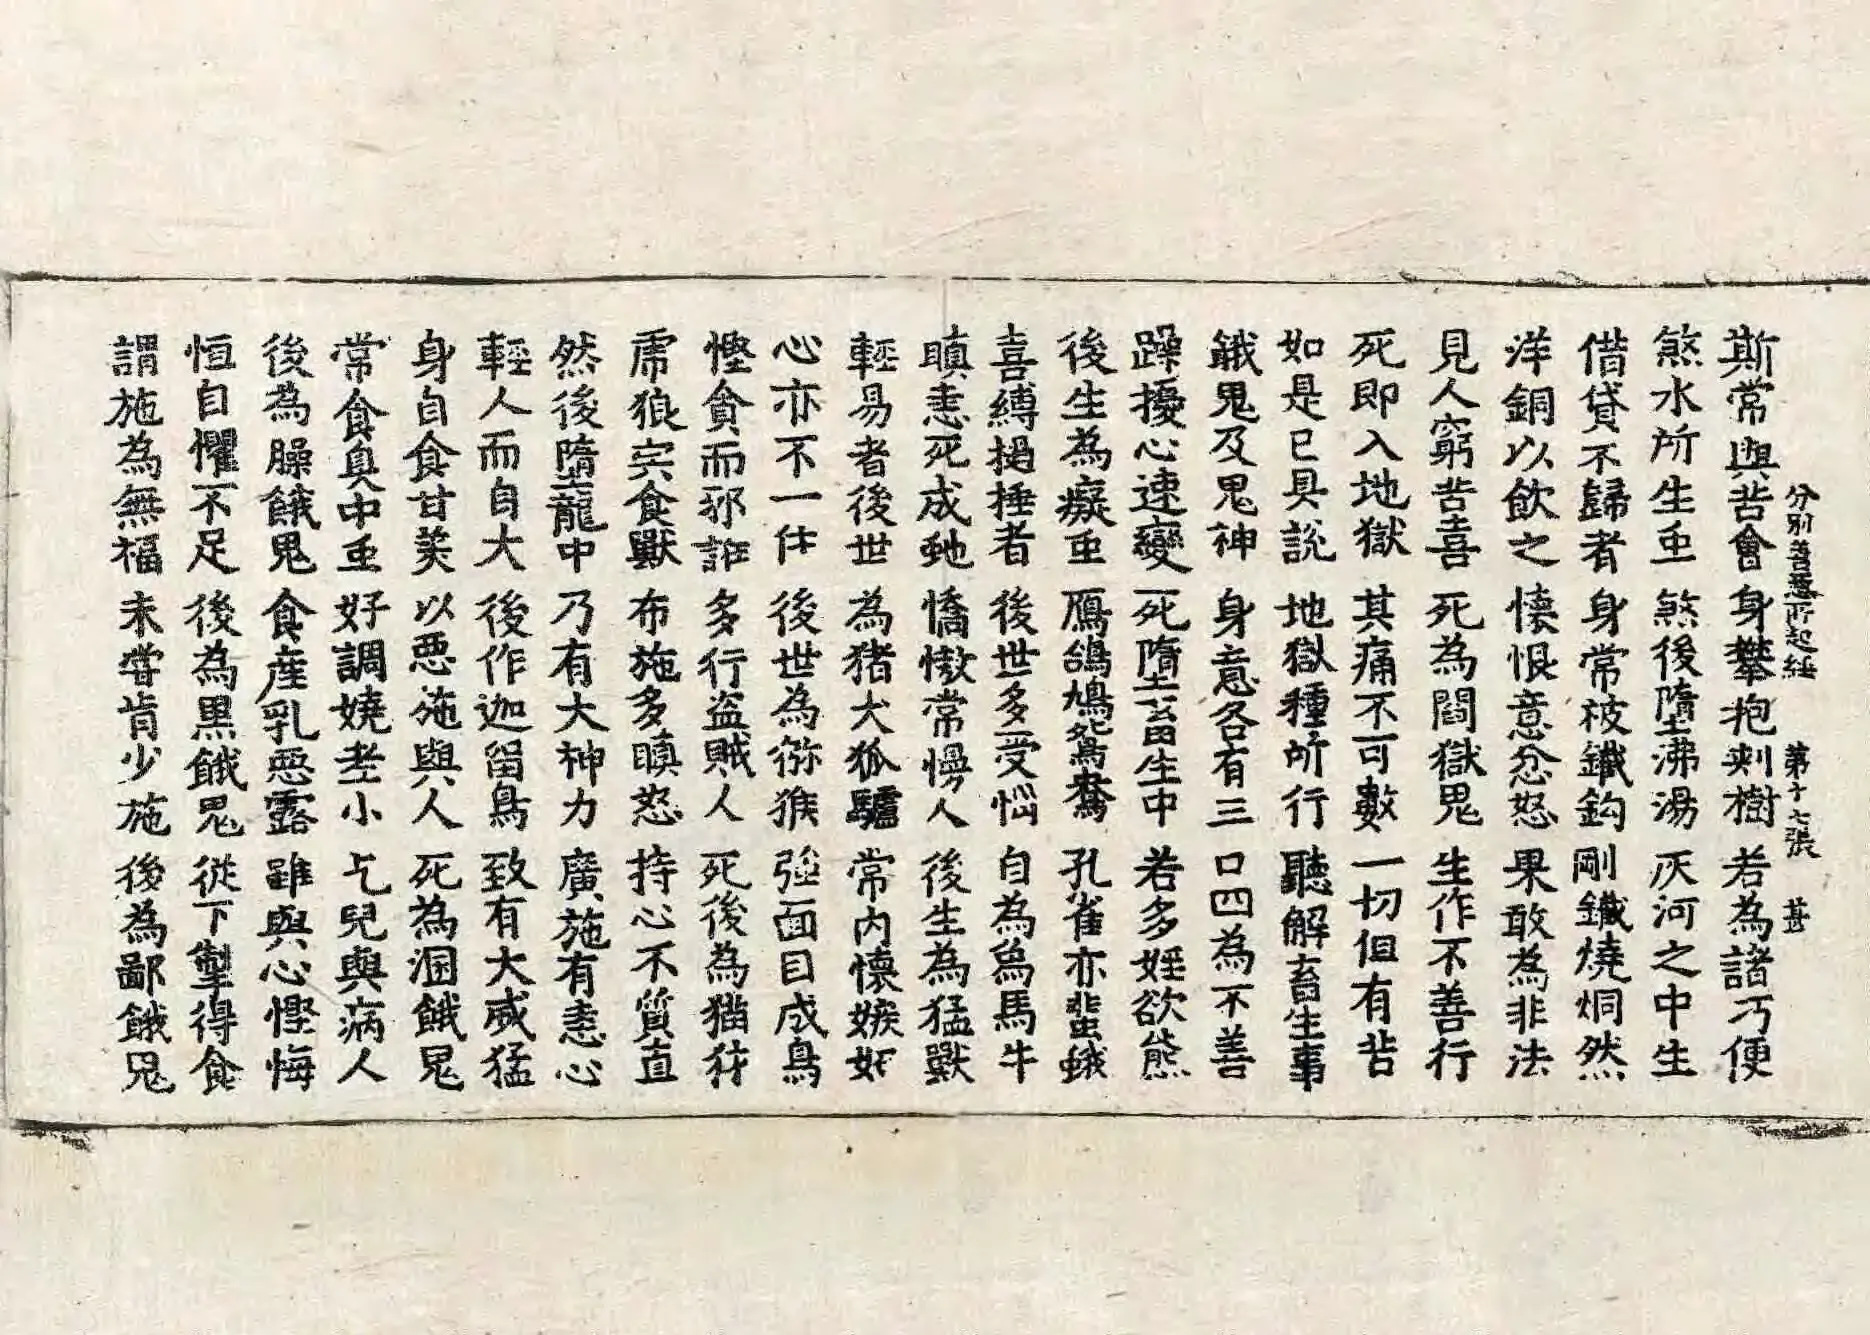 分別善惡所起經 第十七張 甚
斯常與苦會 身攀抱刾樹 若為諸巧便
煞水所生虫 煞後墮沸湯 灰河之中生
借貸不歸者 身常被鐵鈎 剛鐵燒烔然
洋銅以飲之 懐恨意忿怒 果敢為非法
見人窮苦喜 死為閻獄鬼 生作不善行
死即入地獄 其痛不可數 一切但有苦
如是已具說 地獄種所行 聽解畜生事
餓鬼及鬼神 身意各有三 口四為不善
躁擾心速變 死墮畜生中 若多婬欲態
後生為癡虫 鴈鴿鳩鴛鴦 孔雀亦蜚蛾
喜縛撾捶者 後世多受惱 自為象馬牛
瞋恚死成虵 憍慠常慢人 後生為猛獸
輕易者後世 為猪犬狐驢 常內懷嫉妬
心亦不一住 後世為猕猴 強面目成鳥
慳貪而邪誑 多行盜賊人 死後為猫犲
虎狼宍食獸 布施多瞋怒 持心不質直
然後墮龍中 乃有大神力 廣施有恚心
輕人而自大 後作迦留鳥 致有大威猛
身自食甘美 以惡施與人 死為溷餓鬼
常食臭中虫 好調嬈老小 乞兒與病人
後為臊餓鬼 食產乳惡露 雖與心慳悔
恒自懼不足 後為黑餓鬼 從下掣得食
謂施為無福 未甞肯少施 後為鄙餓鬼